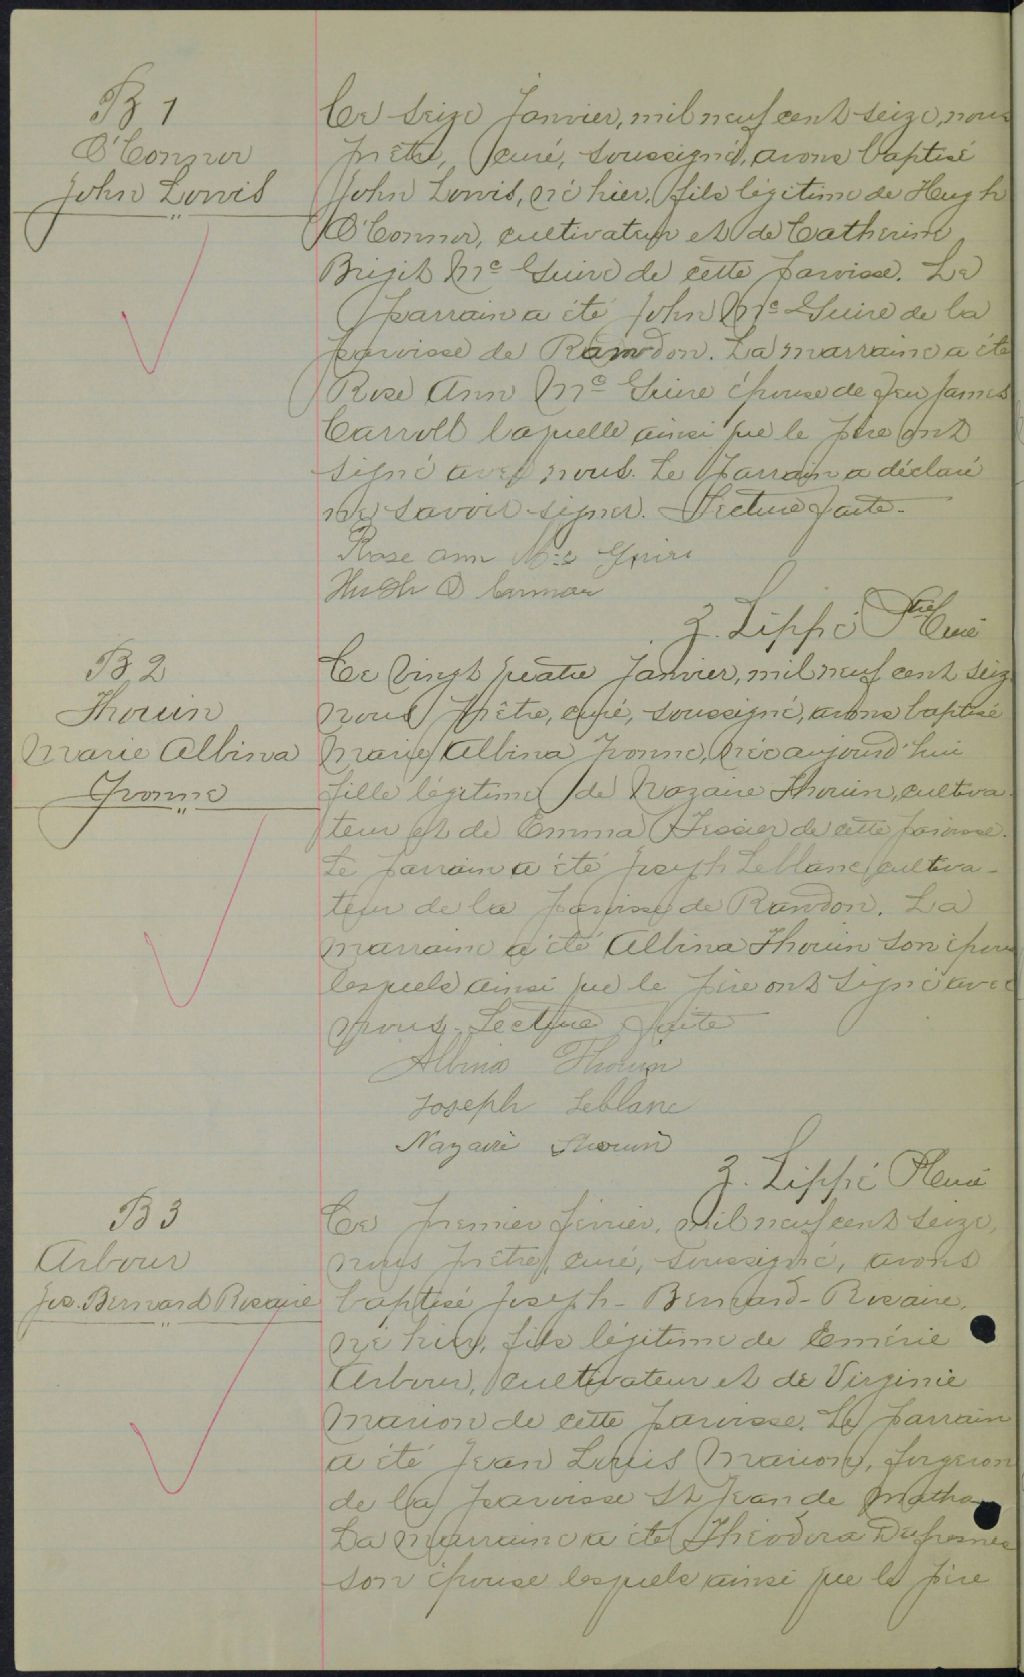 B 1
O'Connor
John Louis
Ce seize Janvier, mil neuf cent seize, nous
prêtre, curé, soussigné, avons baptisé
John Louis, né hier, fils légitime de Hugh
O'Connor, cultivateur et de Catherine
Brigit Mc Guire de cette paroisse. Le
parrain a été John Mc Guire de la
paroisse de Rawdon. La marraine a été
Rose Ann Mc Guire épouse de feu James
Carroll laquelle ainsi que le père ont
signé avec nous. Le parrain a déclaré
ne savoir signer. Lecture faite.
Rose ann Mc Guire
Hugh O Connor
Z. Lippé Ptre Curé
B 2
Thouin
Marie Albina
Yvonne
Ce vingt quatre Janvier, mil neuf cent seize
nous prêtre, curé, soussigné, avons baptisé
Marie Albina Yvonne, née aujourd'hui
fille légitime de Nazaire Thouin, cultiva-
teur et de Emma Tessier de cette paroisse.
Le parrain a été Joseph Leblanc cultiva-
teur de la paroisse de Rawdon. La
marraine a été Albina Thouin son épouse
lesquels ainsi que le père ont signé avec
nous. Lecture faite
Albina Thouin
Joseph Leblanc
Nazaire Thouin
Z. Lippé Ptre Curé
B 3
Arbour
Jos. Bernard Rosaire
Ce premier février, mil neuf cent seize,
nous prêtre, curé, soussigné, avons
baptisé Joseph-Bernard-Rosaire,
né hier, fils légitime de Emérie
Arbour, cultivateur et de Virginie
Marion de cette paroisse. Le parrain
a été Jean Louis Marion, forgeron
de la paroisse St Jean de Matha
La marraine a été Théodora Dufresne
son épouse lesquels ainsi que le père